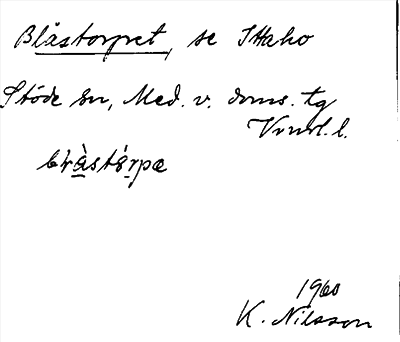 Blåstorpet, se Ittaho
Stöde sn, Med. v. doms. tg
Vrnrl. l.
1960
K. Nilsson